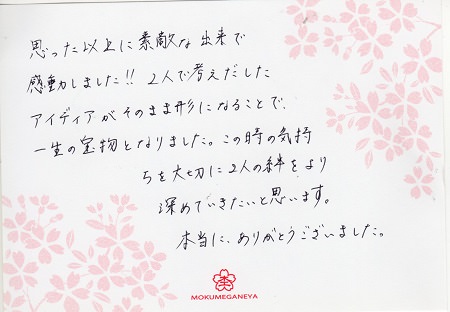 思った以上に素敵な出来で
感動しました!! 2人で考えだした
アイディアがそのまま形になることで、
一生の宝物となりました。この時の気持
ちを大切に2人の絆をより
深めていきたいと思います。
本当に、ありがとうございました。
MOKUMEGANEYA